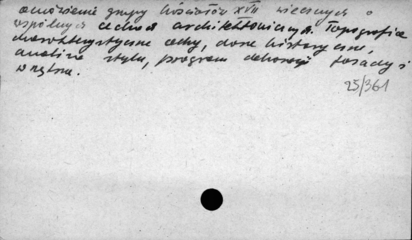 omówienie grupy kościołów XVII wiecznych o
wspólnych cechach architektonicznych. Topografia
charakterystyczne cechy, dane historyczne,
analiza stylu, program dekoracji fasady i
wnętrza.
25/361